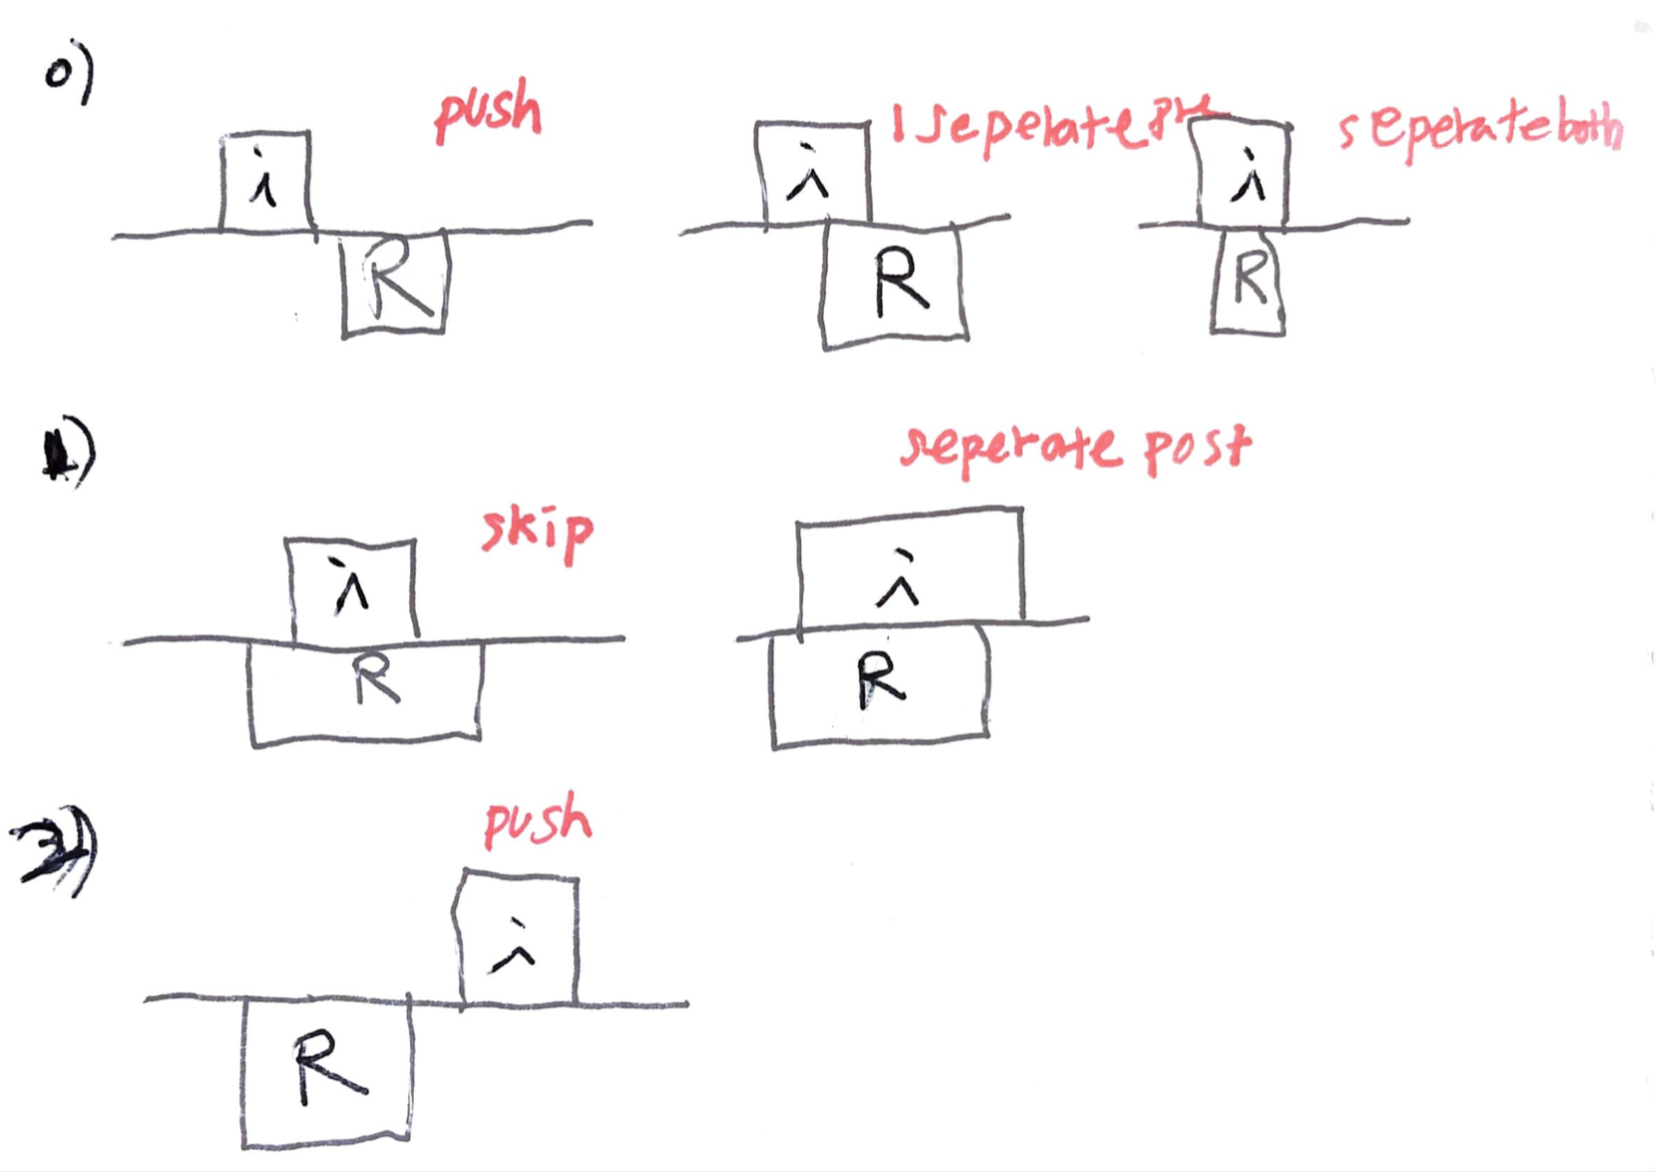 0)
push
seperate pre
seperate both
i R
i R
i R
1)
seperate post
skip
i R
i R
2)
push
i
R